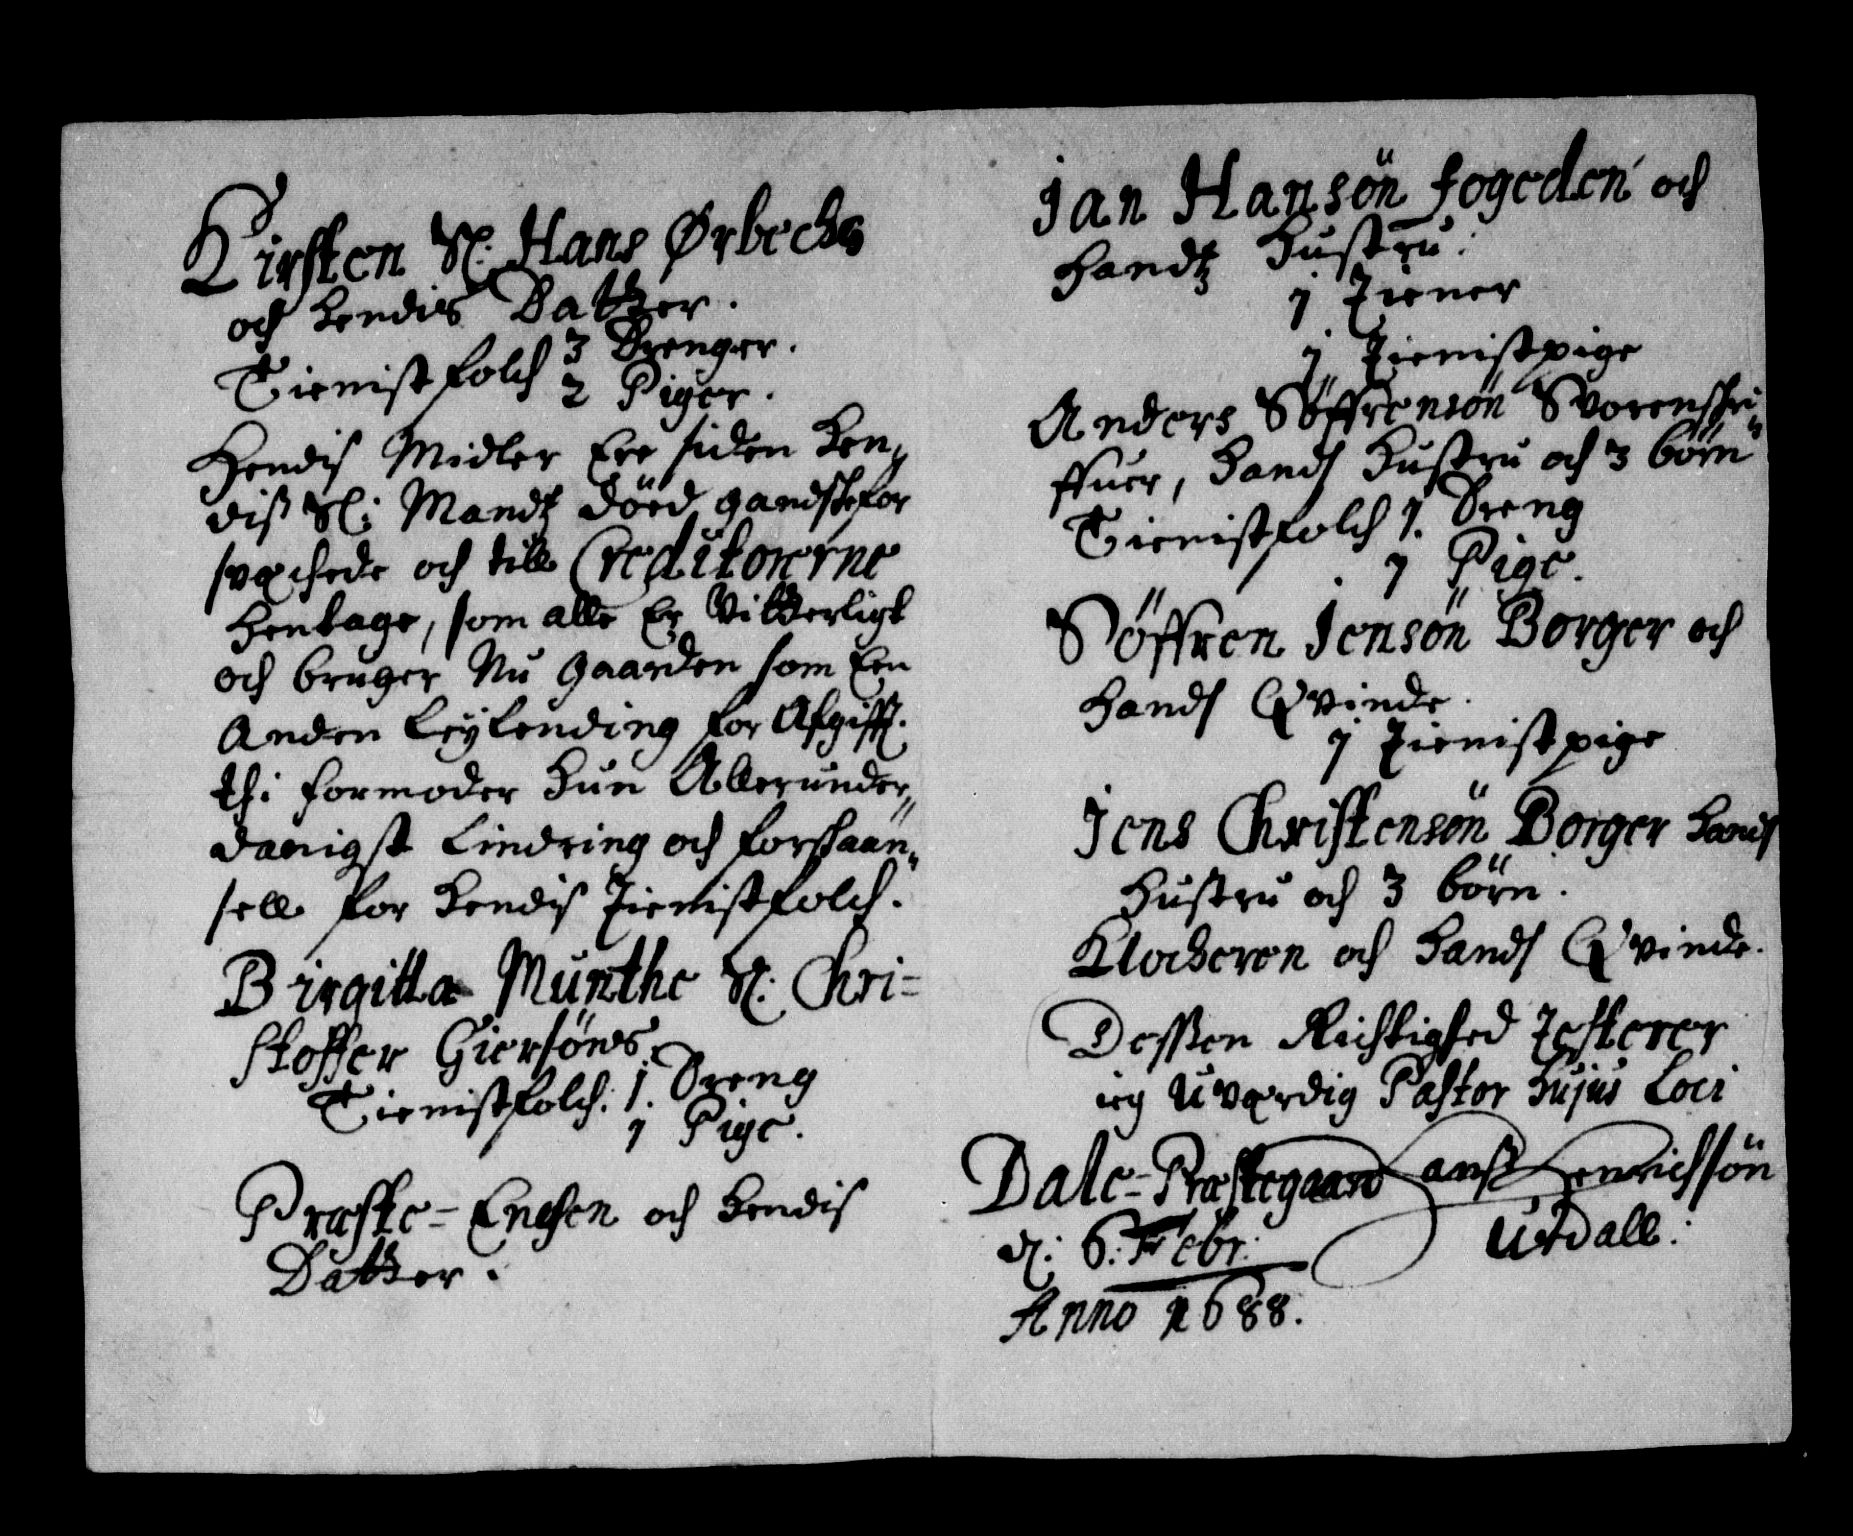 Kirsten Sl: Hans Ørbechs
och hendis Datter.
Tienistfolch 3 Drenger.
2 Piger.
Hendis Midler Ere siden hen„
dis Sl: Mandtz död gandske for
svæchede och till Creditorerne
hentage, som alle Er vitterligt
och bruger Nu gaarden som Een
Anden leylending for Afgifft.
thi formoder hun Allerunder„
danigst Lindring och forskaan„
sell for hendis Tienistfolch.
Birgitta Munthe Sl: Chri=
stoffer Giersöns
Tienistfolch: 1. Dreng
1 Pige.
Præste=Enchen och hendis
Datter.
Jan Hansön fogeden och
handtz Hustru:
1 Tiener
1 Tienistpige
Anders Söffrensön Svorenskri„
ffuer, hands hustru och 3 börn
Tienistfolch 1. Dreng
1 Pige.
Söffren Jensön Borger och
hands Qvinde.
1 Tienistpige
Jens Christensön Borger hands
hustru och 3 börn.
Klocheren och hands Qvinde.
Dessen Richtighed Testerer
ieg Uværdig Pastor hujus Loci
Dale=Præstegaard Hanss Henrichssön
d: 6. Febr: Utdall:
Anno 1688.